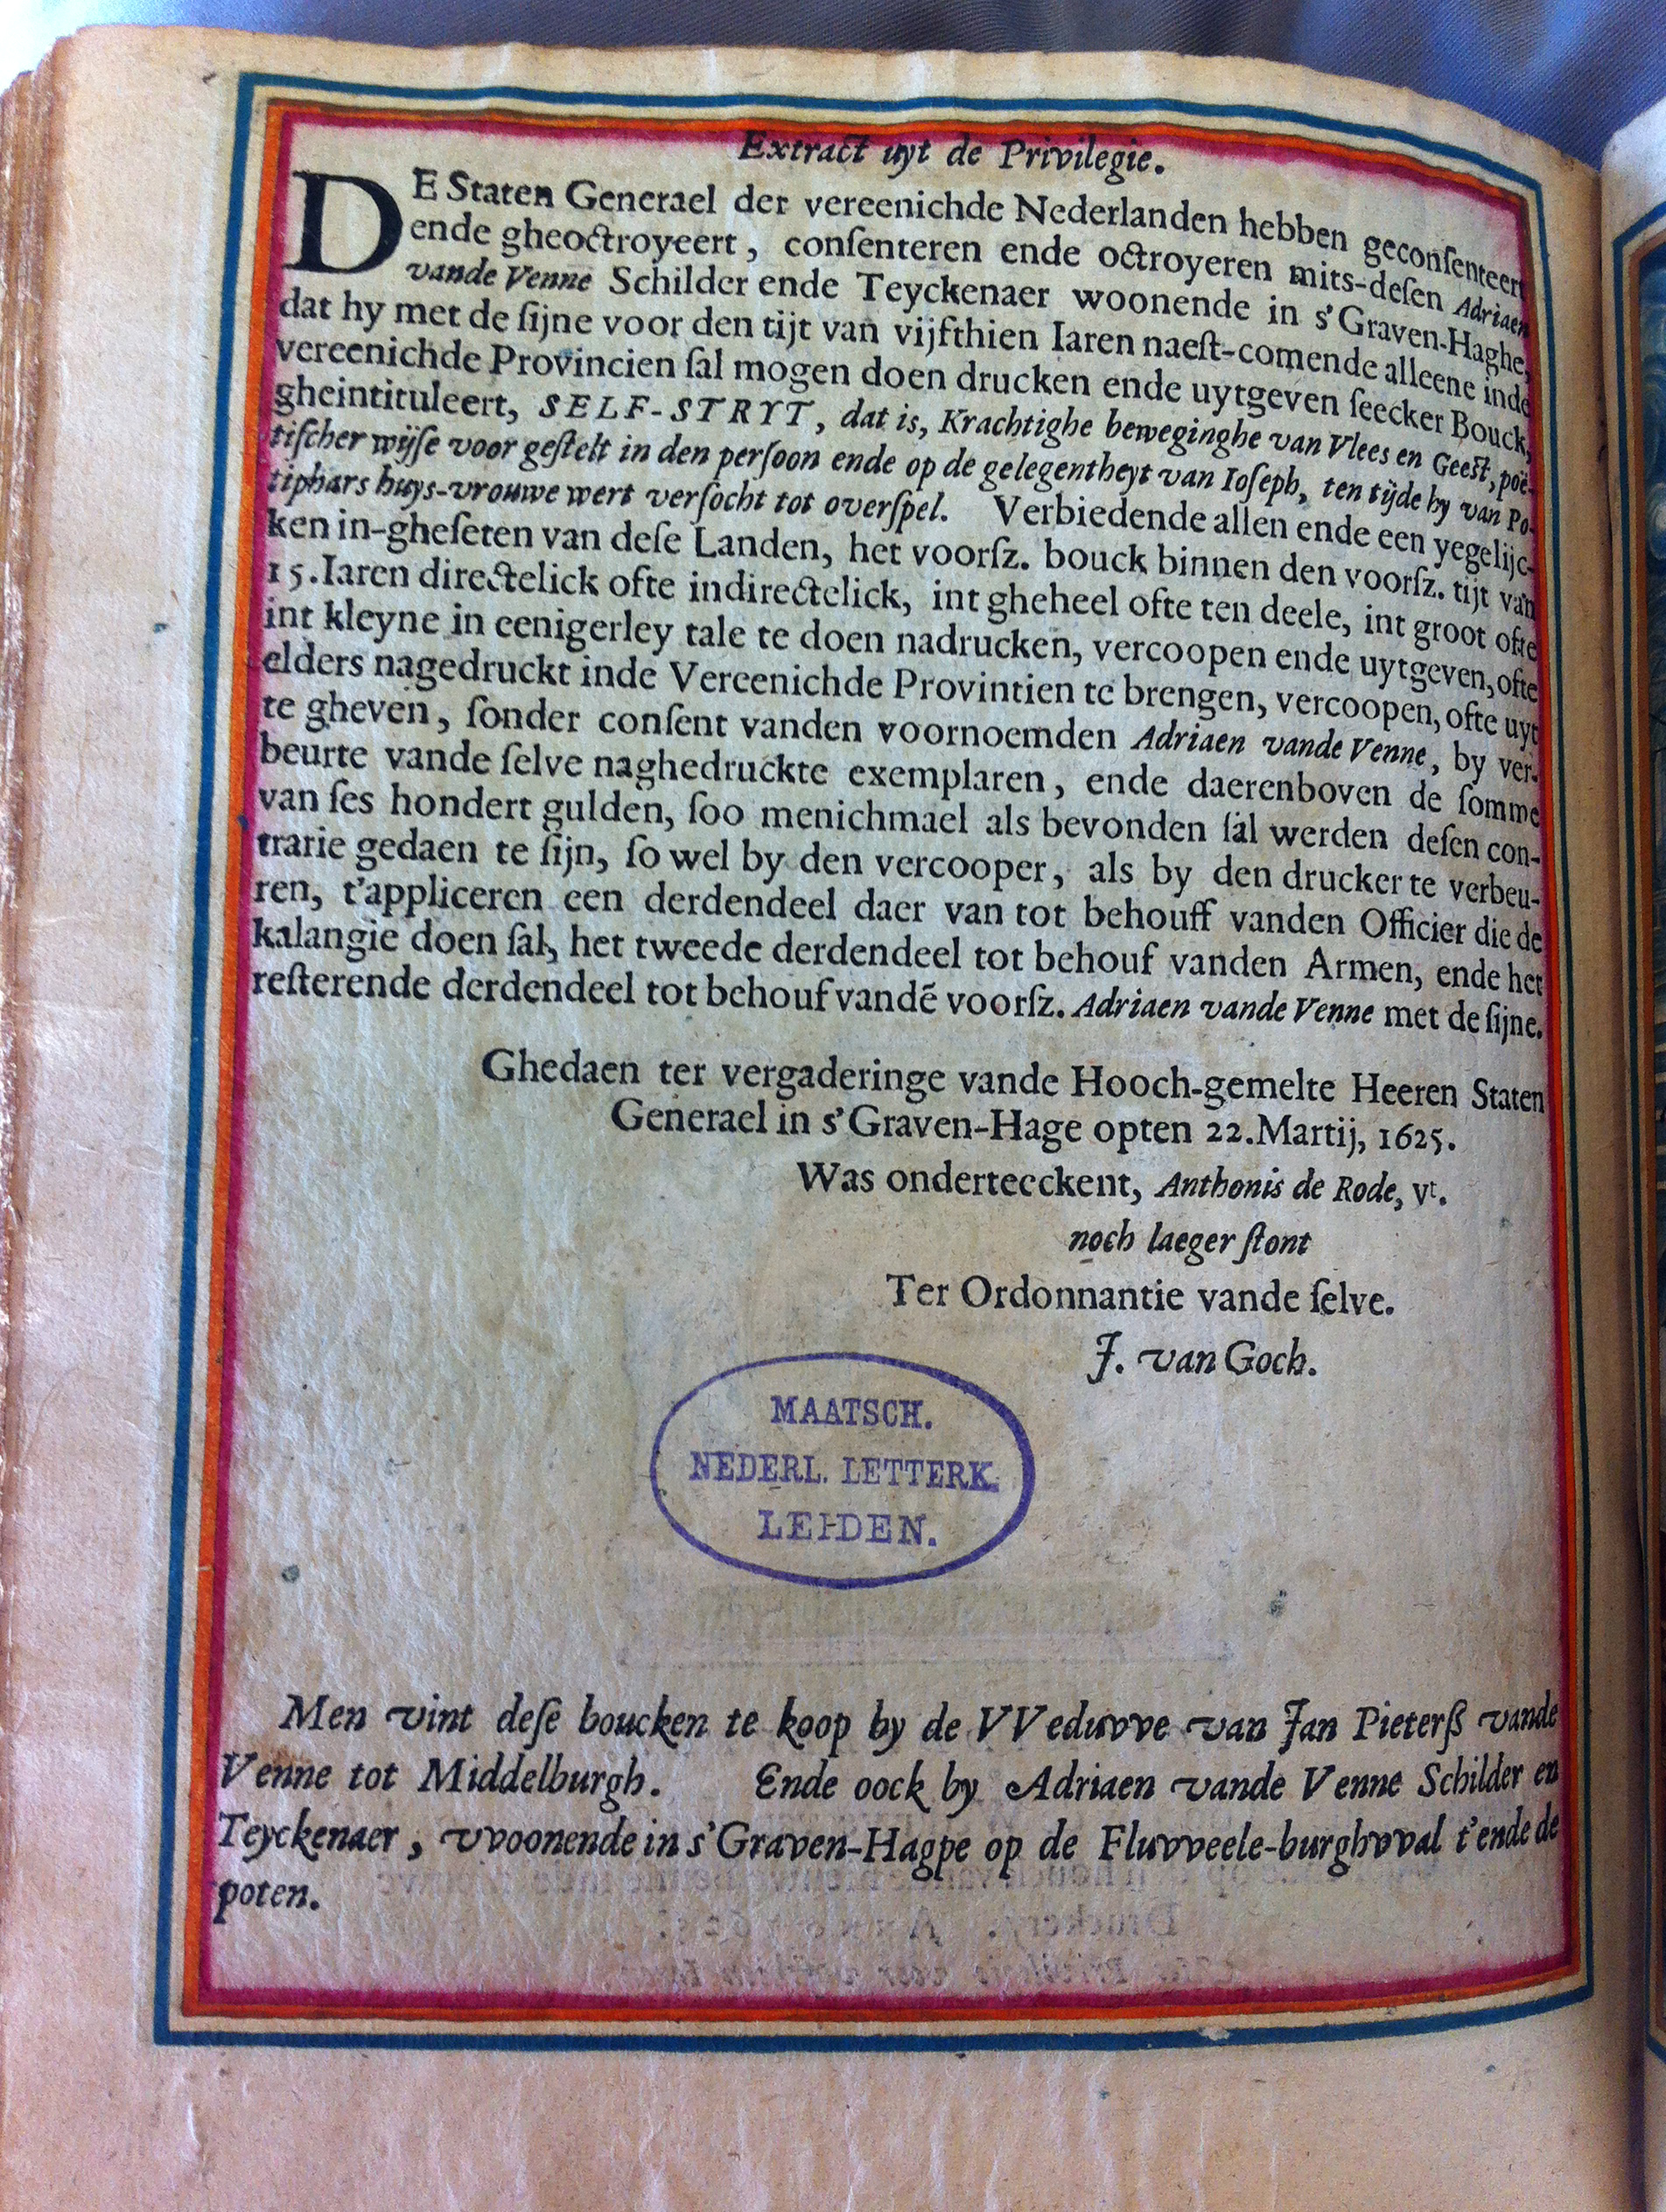 Extract uyt de Privilegie.
DE Staten Generael der vereenichde Nederlanden hebben geconſenteert
ende gheoctroyeert, conſenteren ende octroyeren mits-deſen Adriaen
vande Venne Schilder ende Teyckenaer woonende in s'Graven-Haghe,
dat hy met de ſijne voor den tijt van vijfthien Iaren naeſt-comende alleene inde
vereenichde Provincien ſal mogen doen drucken ende uytgeven ſeecker Bouck,
gheintituleert, SELF-STRYT, dat is, Krachtighe beweginghe van Vlees en Geeſt, poë-
tiſcher wijſe voor geſtelt in den perſoon ende op de gelegentheyt van Ioſeph, ten tijde hy van Po-
tiphars huys-vrouwe wert verſocht tot overſpel. Verbiedende allen ende een yegelijc-
ken in-gheſeten van deſe Landen, het voorſz. bouck binnen den voorſz. tijt van
15. Iaren directelick ofte indirectelick, int gheheel ofte ten deele, int groot ofte
int kleyne in eenigerley tale te doen nadrucken, vercoopen ende uytgeven, ofte
elders nagedruckt inde Vereenichde Provintien te brengen, vercoopen, ofte uyt
te gheven, ſonder conſent vanden voornoemden Adriaen vande Venne, by ver-
beurte vande ſelve naghedruckte exemplaren, ende daerenboven de ſomme
van ſes hondert gulden, ſoo menichmael als bevonden ſal werden deſen con-
trarie gedaen te ſijn, ſo wel by den vercooper, als by den drucker te verbeu-
ren, t'appliceren een derdendeel daer van tot behouff vanden Officier die de
kalangie doen ſal, het tweede derdendeel tot behouf vanden Armen, ende het
reſterende derdendeel tot behouf vandē voorſz. Adriaen vande Venne met de ſijne.
Ghedaen ter vergaderinge vande Hooch-gemelte Heeren Staten
Generael in s'Graven-Hage opten 22. Martij, 1625.
Was onderteeckent, Anthonis de Rode, vᵗ.
noch laeger ſtont
Ter Ordonnantie vande ſelve.
J. van Goch.
MAATSCH.
NEDERL. LETTERK.
LEIDEN.
Men vint deſe boucken te koop by de VVeduvve van Jan Pieterß vande
Venne tot Middelburgh. Ende oock by Adriaen vande Venne Schilder en
Teyckenaer, vvoonende in s'Graven-Hagpe op de Fluvveele-burghvval t'ende de
poten.